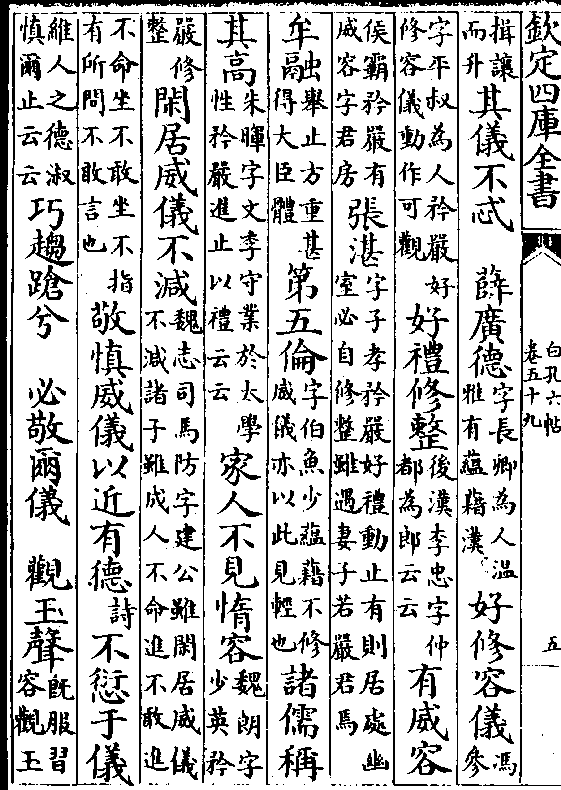 欽定四庫全書
白孔六帖
卷五十九
五
揖讓而升其儀不忒 薛廣德字長卿為人温雅有藴藉漢好修容儀馮參
字平叔為人矜嚴好修容儀動作可觀好禮修整後漢李忠字仲都為郎云云有威容
侯霸矜嚴有威容字君房張湛字子孝矜嚴好禮動止有則居處幽室必自修整雖遇妻子若嚴君焉
牟融舉止方重甚得大臣體第五倫字伯魚少藴藉不修威儀亦以此見輕也諸儒稱
其高朱暉字文季守業於太學性矜嚴進止以禮云云家人不見惰容魏朗字少英矜
嚴修整閑居威儀不減魏志司馬防字建公雖閑居威儀不減諸子雖成人不命進不敢進
不命坐不敢坐不指有所問不敢言也敬慎威儀以近有德詩不愆于儀
維人之德淑慎爾止云云巧趨蹌兮 必敬爾儀 觀玉聲既服習容觀玉